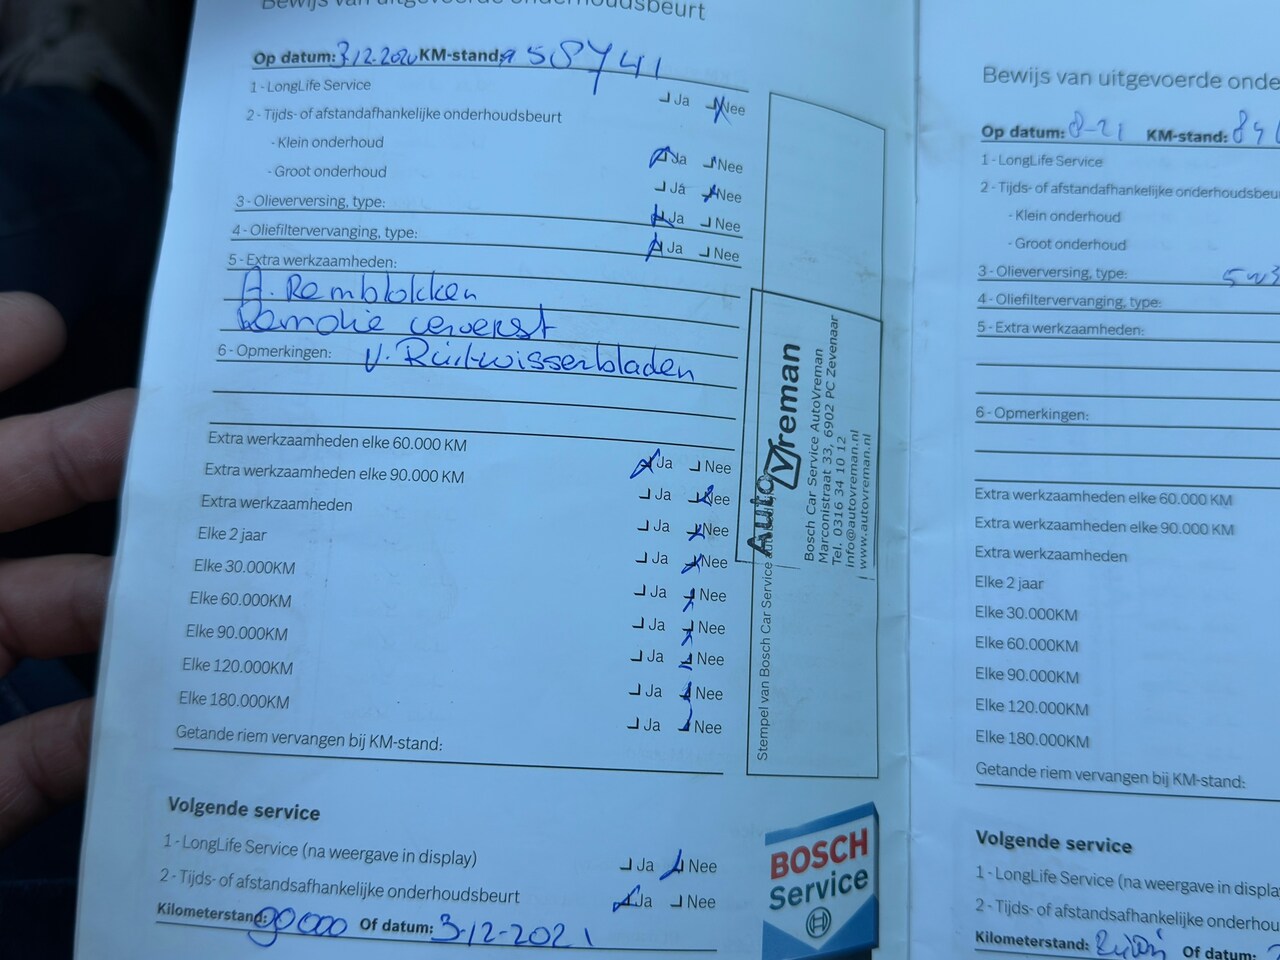 Bewijs van uitgevoerde onderhoudsbeurt
Op datum: 3.12.2020 KM-stand: 58741
1 - LongLife Service Ja Nee
2 - Tijds- of afstandafhankelijke onderhoudsbeurt
- Klein onderhoud Ja Nee
- Groot onderhoud Ja Nee
3 - Olieverversing, type: Ja Nee
4 - Oliefiltervervanging, type: Ja Nee
5 - Extra werkzaamheden:
A. Remblokken
Remolie ververst
6 - Opmerkingen: V. Ruitwisserbladen
Extra werkzaamheden elke 60.000 KM Ja Nee
Extra werkzaamheden elke 90.000 KM Ja Nee
Extra werkzaamheden Ja Nee
Elke 2 jaar Ja Nee
Elke 30.000KM Ja Nee
Elke 60.000KM Ja Nee
Elke 90.000KM Ja Nee
Elke 120.000KM Ja Nee
Elke 180.000KM Ja Nee
Getande riem vervangen bij KM-stand:
Volgende service
1 - LongLife Service (na weergave in display) Ja Nee
2 - Tijds- of afstandsafhankelijke onderhoudsbeurt Ja Nee
Kilometerstand: 90000 Of datum: 3-12-2021
Stempel van Bosch Car Service
AutoVreman
Bosch Car Service AutoVreman
Marconistraat 33, 6902 PC Zevenaar
Tel. 0316 34 10 12
info@autovreman.nl
www.autovreman.nl
BOSCH
Service
Bewijs van uitgevoerde onde
Op datum: 8-21 KM-stand: 84
1 - LongLife Service
2 - Tijds- of afstandafhankelijke onderhoudsbeu
- Klein onderhoud
- Groot onderhoud
3 - Olieverversing, type: 5w3
4 - Oliefiltervervanging, type:
5 - Extra werkzaamheden:
6 - Opmerkingen:
Extra werkzaamheden elke 60.000 KM
Extra werkzaamheden elke 90.000 KM
Extra werkzaamheden
Elke 2 jaar
Elke 30.000KM
Elke 60.000KM
Elke 90.000KM
Elke 120.000KM
Elke 180.000KM
Getande riem vervangen bij KM-stand:
Volgende service
1 - LongLife Service (na weergave in displa
2 - Tijds- of afstandsafhankelijke onderhou
Kilometerstand: Of datum: